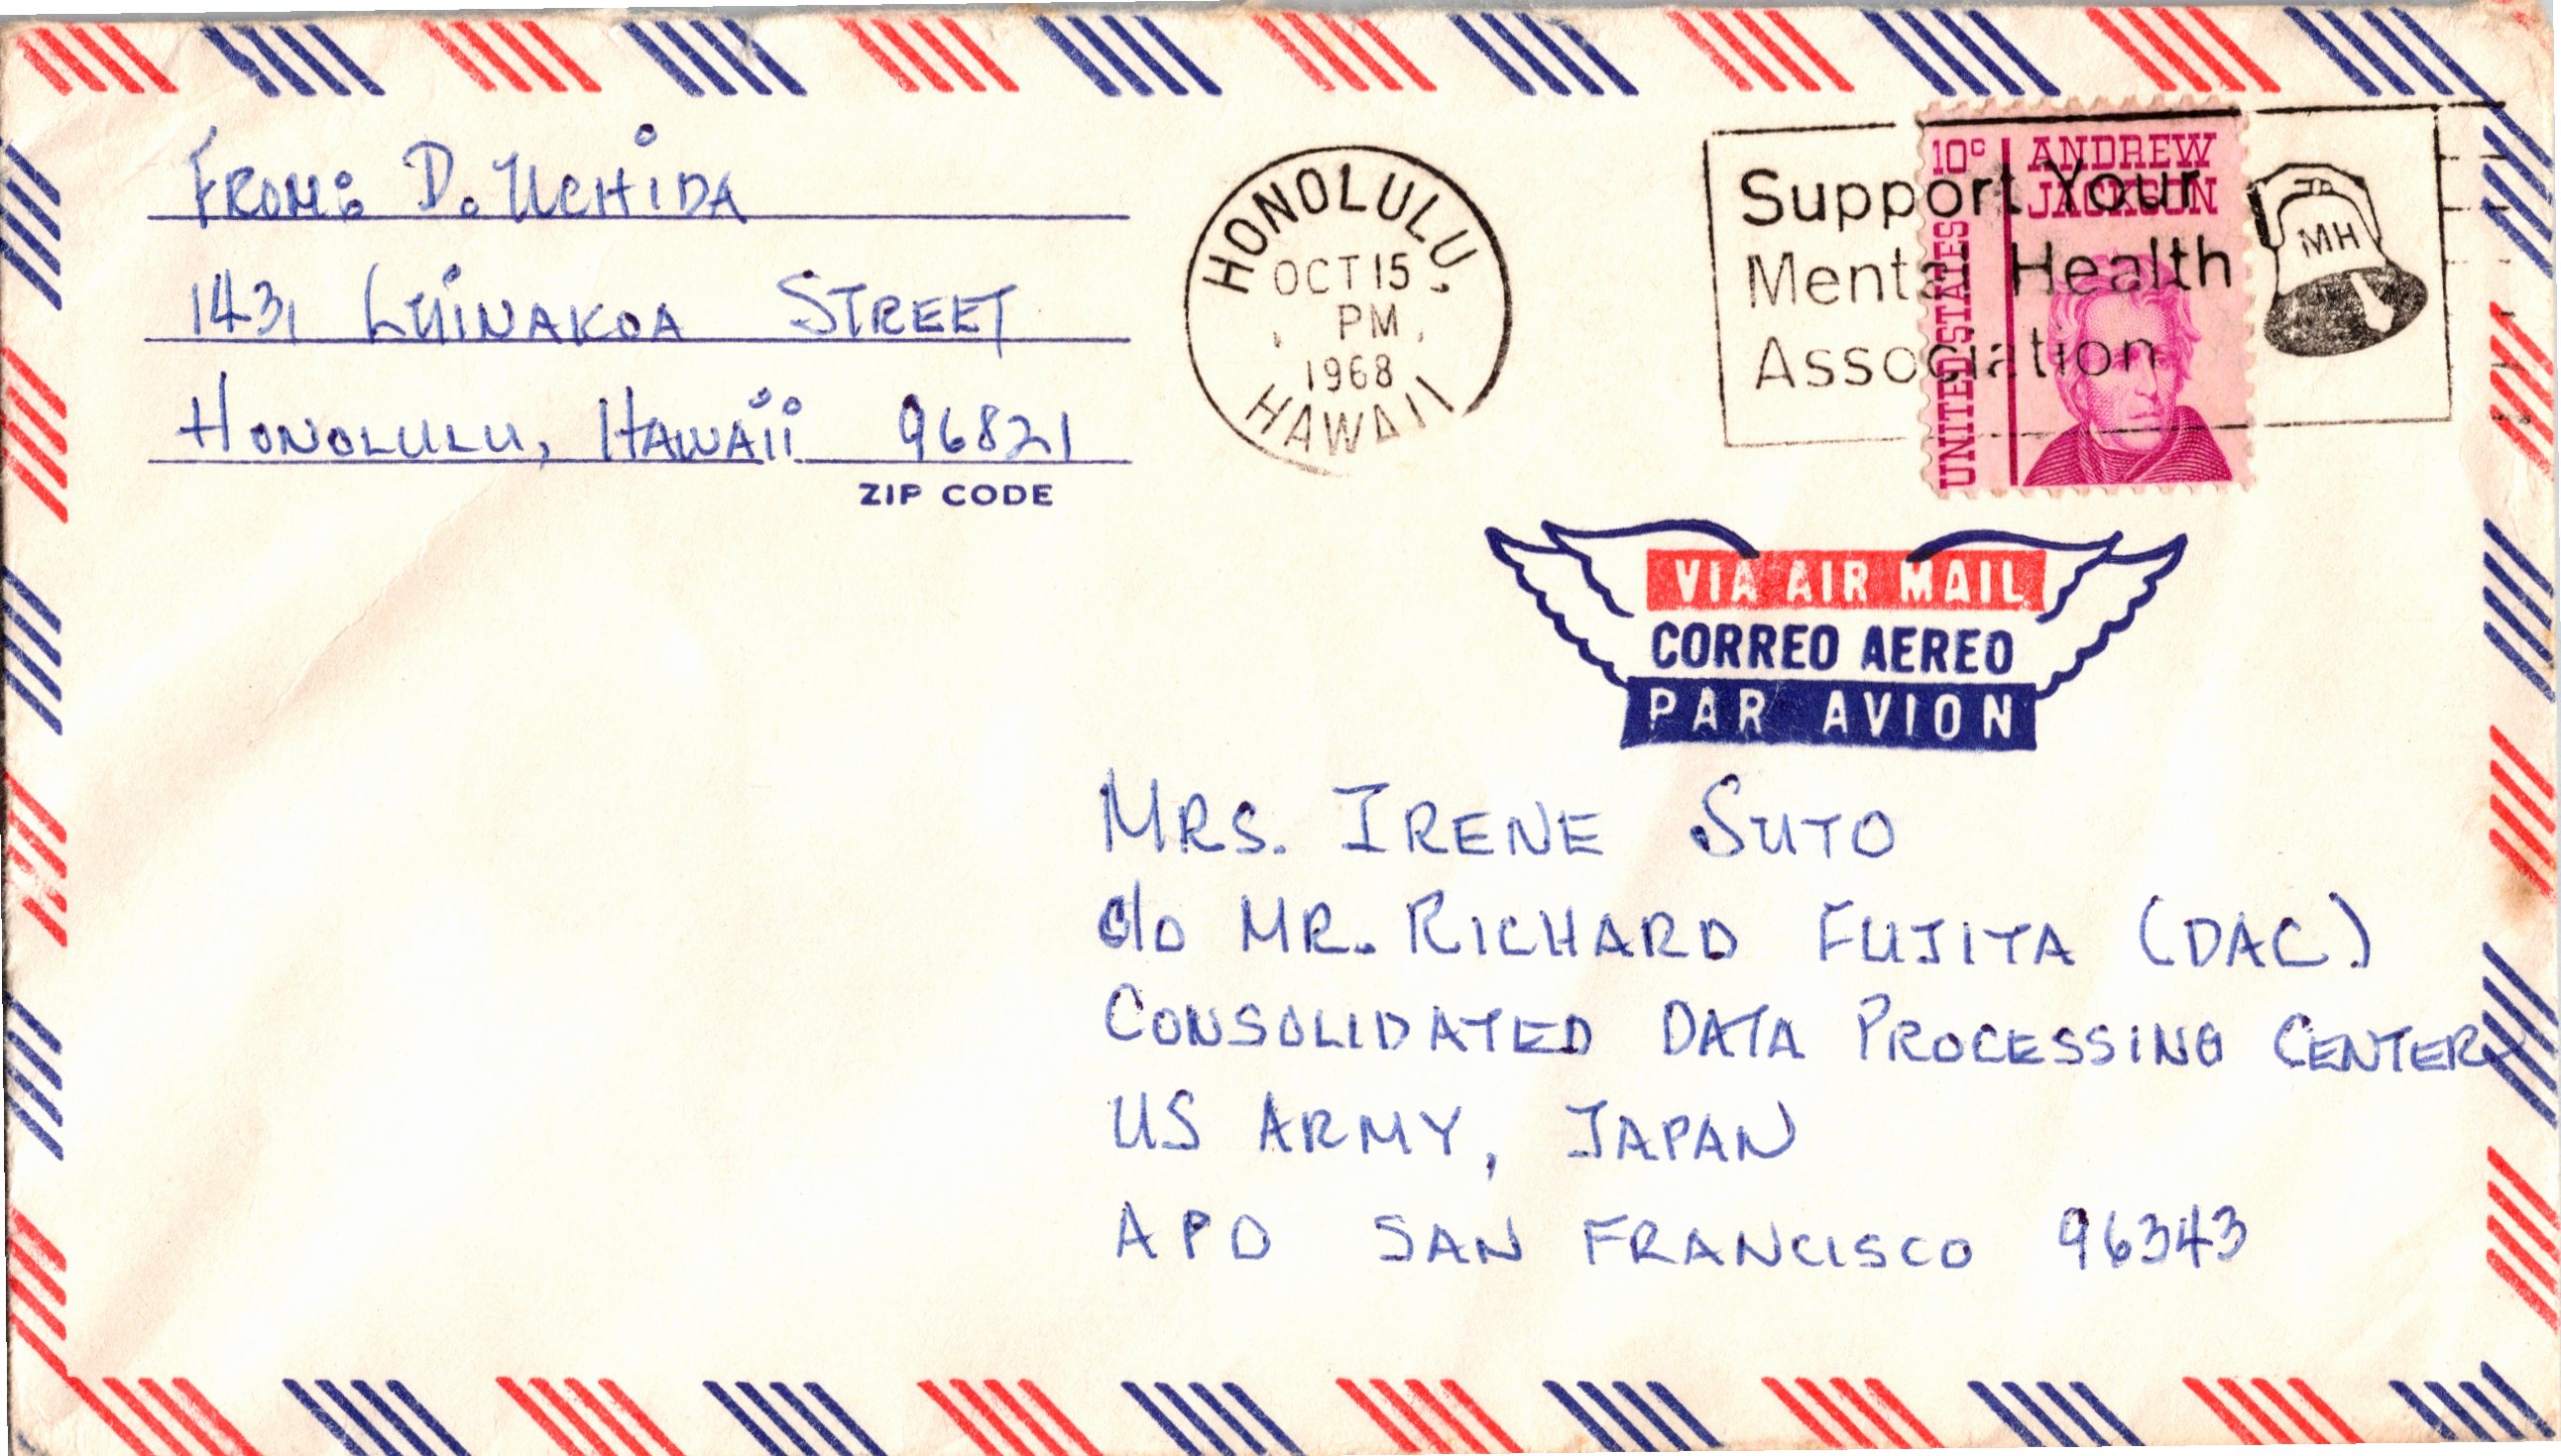 FROM: D. UCHIDA
1431 LUINAKOA STREET
HONOLULU, HAWAII 96821
ZIP CODE
HONOLULU,
OCT 15
PM
1968
HAWAII
Support Your
Mental Health
Association
MH
10c
ANDREW
JACKSON
UNITED STATES
VIA AIR MAIL
CORREO AEREO
PAR AVION
MRS. IRENE SUTO
c/o MR. RICHARD FUJITA (DAC)
CONSOLIDATED DATA PROCESSING CENTER
US ARMY, JAPAN
APO SAN FRANCISCO 96343